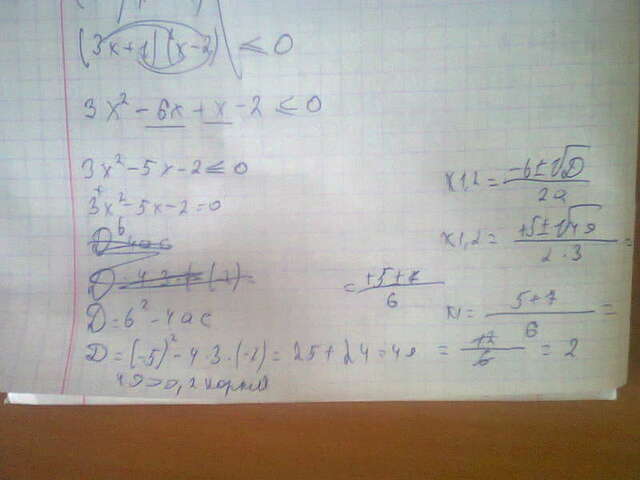 (3x+1)(x-2) ≤ 0
3x² - 6x + x - 2 ≤ 0
3x² - 5x - 2 ≤ 0
3x² - 5x - 2 = 0
D = b² - 4ac
D = (-5)² - 4·3·(-2) = 25 + 24 = 49
49>0, 2 корня
x1,2 = -b±√D / 2a
x1,2 = +5±√49 / 2·3 =
= +5±7 / 6
x1 = 5+7 / 6 =
= 12 / 6 = 2